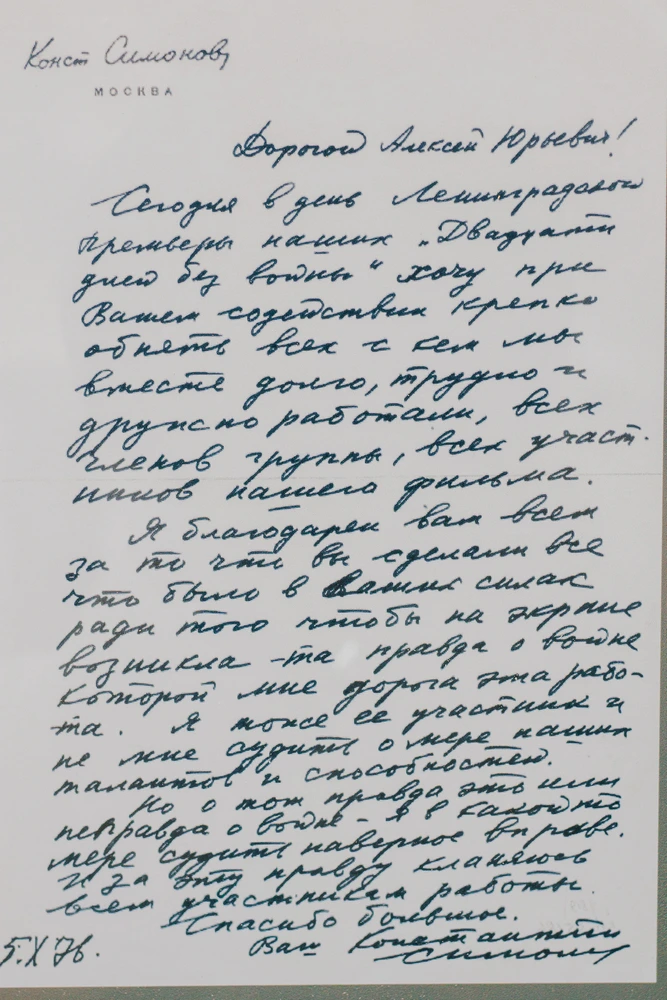 Конст Симонов
МОСКВА
Дорогой Алексей Юрьевич!
Сегодня в день Ленинградской
премьеры наших „Двадцати
дней без войны“ хочу при
Вашем содействии крепко
обнять всех с кем мы
вместе долго, трудно и
дружно работали, всех
членов группы, всех участ-
ников нашего фильма.
Я благодарен вам всем
за то что вы сделали все
что было в ваших силах
ради того чтобы на экране
возникла та правда о войне
которой мне дорога эта рабо-
та. Я тоже ее участник и
не мне судить о мере наших
талантов и способностей.
Но о том правда это или
неправда о войне - я в какой то
мере судить наверное вправе.
И за эту правду кланяюсь
всем участникам работы.
Спасибо большое.
Ваш Константин
Симонов
5.X 76.